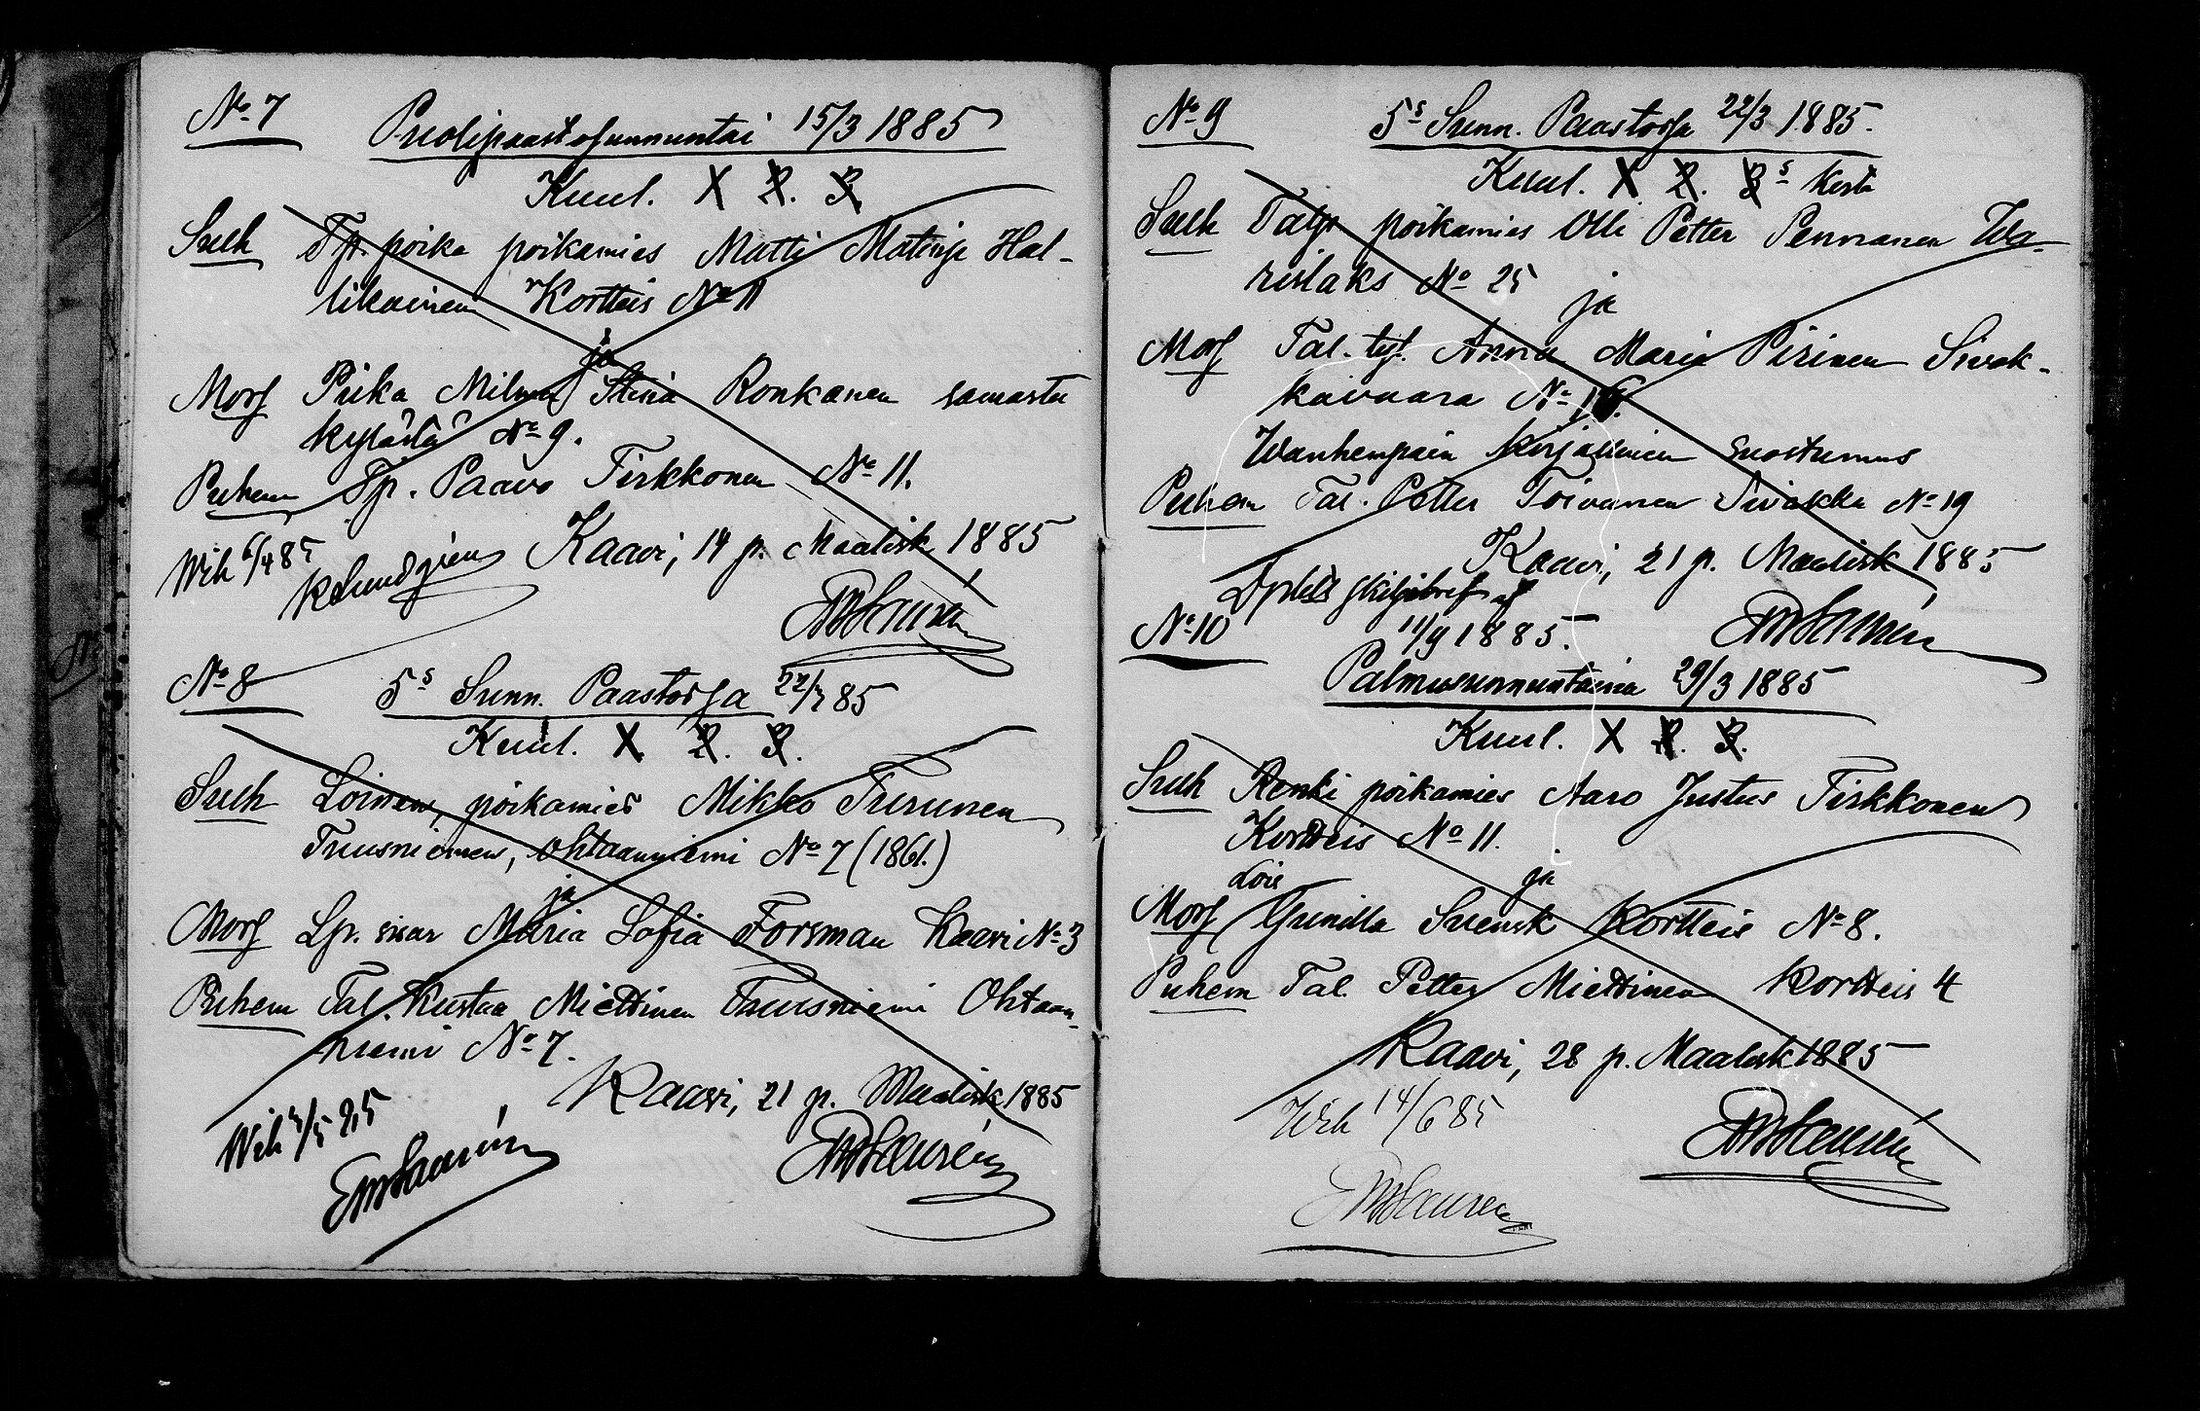 No 7
Puolipaastosunnuntai 15/3 1885
Kuul. X 2. 3.
Sulh Tp. poika poikamies Matti Matinp. Hal-
likainen Kortteis No 11
ja
Mors Piika Milma Stina Ronkanen samasta
kylästä No 9.
Puhem Tp. Paavo Tirkkonen No 11.
Kaavi, 14 p. Maalisk 1885
Wih 6/4 85
No 8
5s Sunn. Paastossa 22/3 85
Kuul. X 2. 3.
Sulh Loinen, poikamies Mikko Turunen
Tuusniemen, Ohtaanniemi No 7 (1861.)
ja
Mors Lp. sisar Maria Sofia Forsman Kaavi No 3
Puhem Tal. Kustaa Miettinen Tuusniemi Ohtaan-
niemi No 7.
Kaavi, 21 p. Maalisk 1885
Wih
No 9
5s Sunn. Paastossa 22/3 1885.
Kuul. X 2. 3s kerta
Sulh poikamies Olli Petter Pennanen Wa-
rislaks No 25
ja
Mors Tal. tyt. Anna Maria Pirinen Sivak-
kavaara No
Wanhempain kirjallinen suostumus
Puhem Tal. Petter Toivanen Sivakka No 19
Kaavi, 21 p. Maalisk 1885
skiljobref af
11/9 1885.
No 10
Palmusunnuntaina 29/3 1885
Kuul. X 2. 3.
Sulh Renki poikamies Aaro Justus Tirkkonen
Kortteis No 11.
ja
Lois
Mors Gunilla Svensk Kortteis No 8.
Puhem Tal. Petter Miettinen Kortteis 4
Kaavi, 28 p. Maalisk 1885
Wih 14/6 85